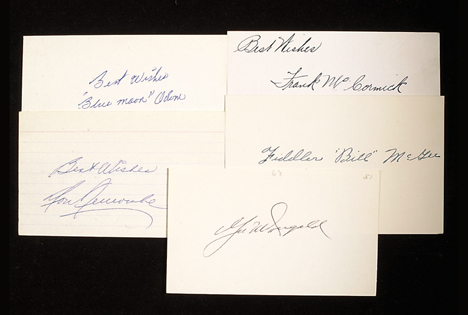 Best Wishes
"Blue moon" Odom
Best Wishes
Frank McCormick
Best Wishes
Don Newcombe
Fiddler "Bill" McGee